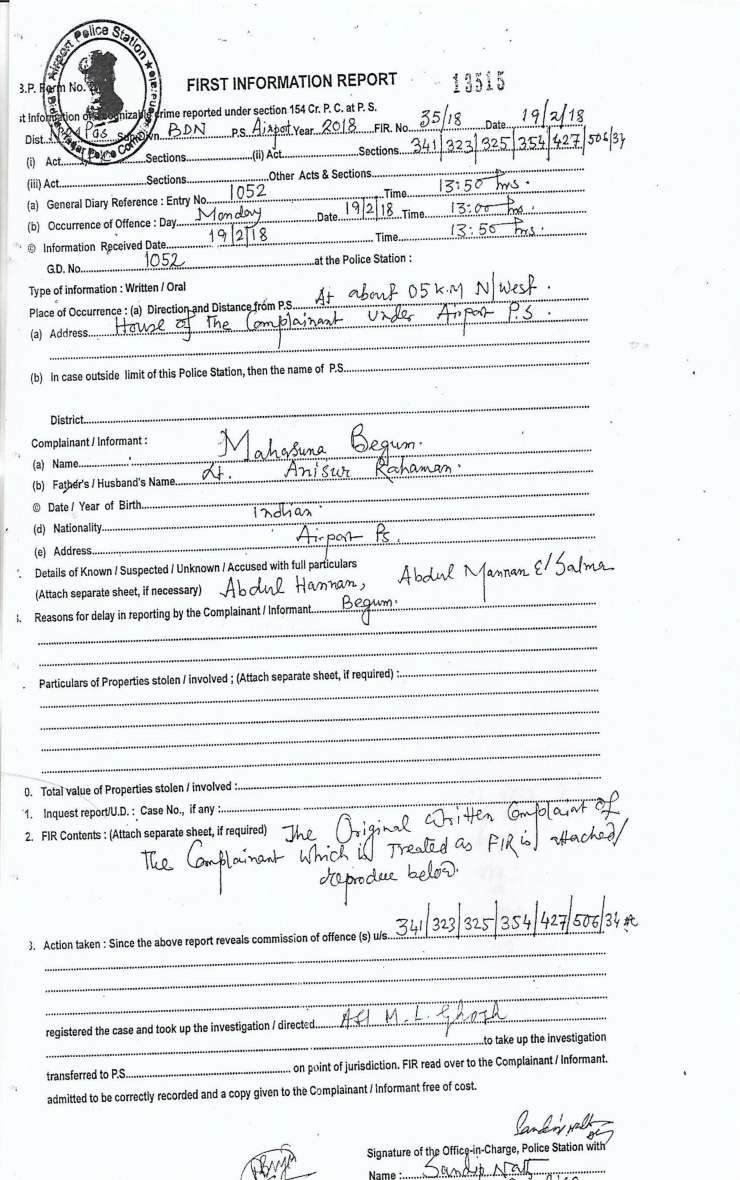 Airport Police Station
13515
B.P. Form No.
FIRST INFORMATION REPORT
st Information of Cognizable crime reported under section 154 Cr. P. C. at P. S.
Dist. Pgs Subdivn. BDN P.S. Airport Year 2018 FIR. No. 35/18 Date 19/2/18
(i) Act Sections (ii) Act Sections 341/323/325/354/427/506/34
(iii) Act Sections Other Acts & Sections
(a) General Diary Reference : Entry No. 1052 Time 13:50 hrs.
(b) Occurrence of Offence : Day Monday Date 19/2/18 Time 13:00 hrs.
© Information Received Date 19/2/18 Time 13:50 hrs.
G.D. No. 1052 at the Police Station :
Type of information : Written / Oral
Place of Occurrence : (a) Direction and Distance from P.S. At about 05 K.M N/West.
(a) Address House of The Complainant under Airport P.S.
(b) In case outside limit of this Police Station, then the name of P.S.
District
Complainant / Informant :
(a) Name Mahasuna Begum.
(b) Father's / Husband's Name Lt. Anisur Rahaman.
© Date / Year of Birth
(d) Nationality Indian
(e) Address Airport Ps.
Details of Known / Suspected / Unknown / Accused with full particulars
(Attach separate sheet, if necessary) Abdul Hannan, Abdul Mannan & Salma
Begum.
Reasons for delay in reporting by the Complainant / Informant
Particulars of Properties stolen / involved ; (Attach separate sheet, if required) :
0. Total value of Properties stolen / involved :
1. Inquest report/U.D. : Case No., if any :
2. FIR Contents : (Attach separate sheet, if required) The Original Written Complaint of
the Complainant which is Treated as FIR is attached/
reproduce below.
3. Action taken : Since the above report reveals commission of offence (s) u/s. 341/323/325/354/427/506/34
registered the case and took up the investigation / directed ASI M. L. Ghosh
to take up the investigation
transferred to P.S. on point of jurisdiction. FIR read over to the Complainant / Informant.
admitted to be correctly recorded and a copy given to the Complainant / Informant free of cost.
Signature of the Office-in-Charge, Police Station with
Name : Sandip Natt